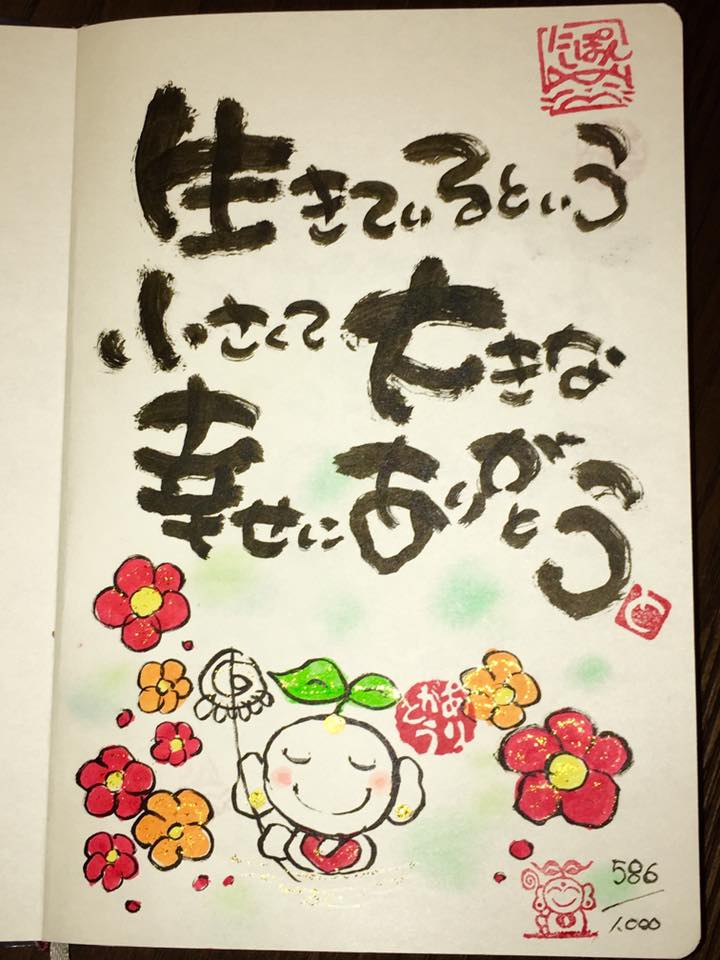 にっぽん
生きているという
小さくて大きな
幸せにありがとう
ありがとう
586
1.000